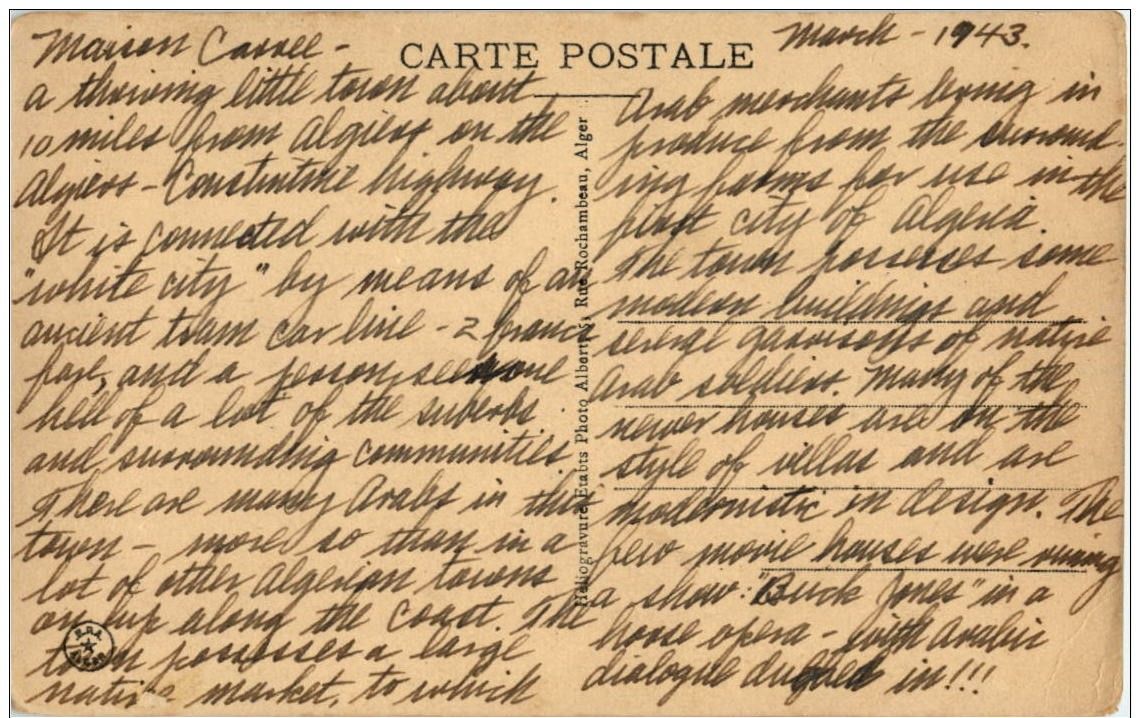 CARTE POSTALE
Maison Carree -
a thriving little town about
10 miles from Algiers on the
Algiers - Constantine highway.
It is connected with the
"white city" by means of an
ancient tram car line - 2 franc
fare, and a person sees one
hell of a lot of the suburbs
and surrounding communities.
There are many Arabs in this
town - more so than in a
lot of other Algerian towns
on up along the coast. The
town possesses a large
native market, to which
Heliogravure Etabts Photo Albert, 5, Rue Rochambeau, Alger
March - 1943.
Arab merchants bring in
produce from the surround-
ing farms for use in the
first city of Algeria.
The town possesses some
modern buildings and
several garrisons of native
Arab soldiers. Many of the
newer houses are on the
style of villas and are
modernistic in design. The
few movie houses were running
a show: "Buck Jones" in a
horse opera - with Arabic
dialogue dubbed in!!!